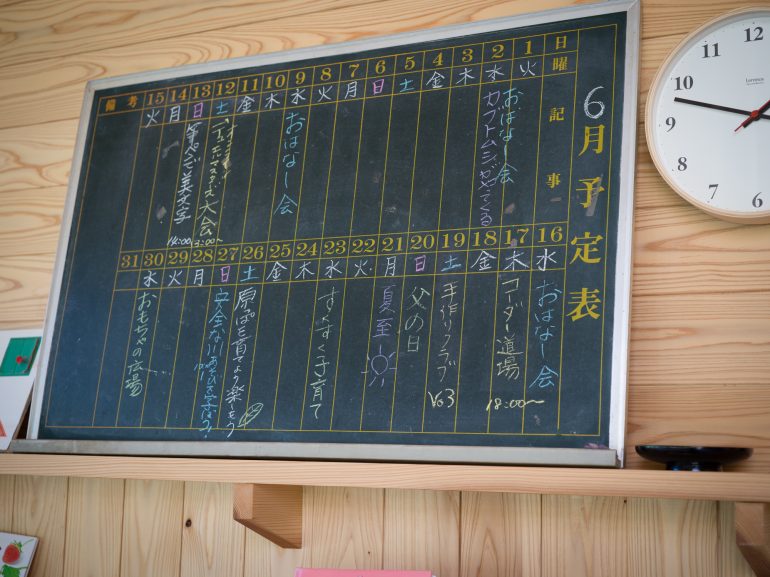 6月予定表
日 曜 記事
1 火
2 水 おはなし会 カブトムシがやってくる
3 木
4 金
5 土
6 日
7 月
8 火
9 水 おはなし会
10 木
11 金
12 土 大会 13:00~
13 日 筆ペンで美文字 14:00
14 月
15 火
備考
16 水 おはなし会
17 木 コーダー道場 18:00~
18 金
19 土 手作りクラブ
20 日 父の日
21 月 夏至
22 火
23 水 すくすく子育て
24 木
25 金
26 土 原っぱを育てよう楽しもう
27 日 安全な川あそびを学ぼう!
28 月
29 火
30 水 おもちゃの広場
31
12
11
10
9
8
7
6